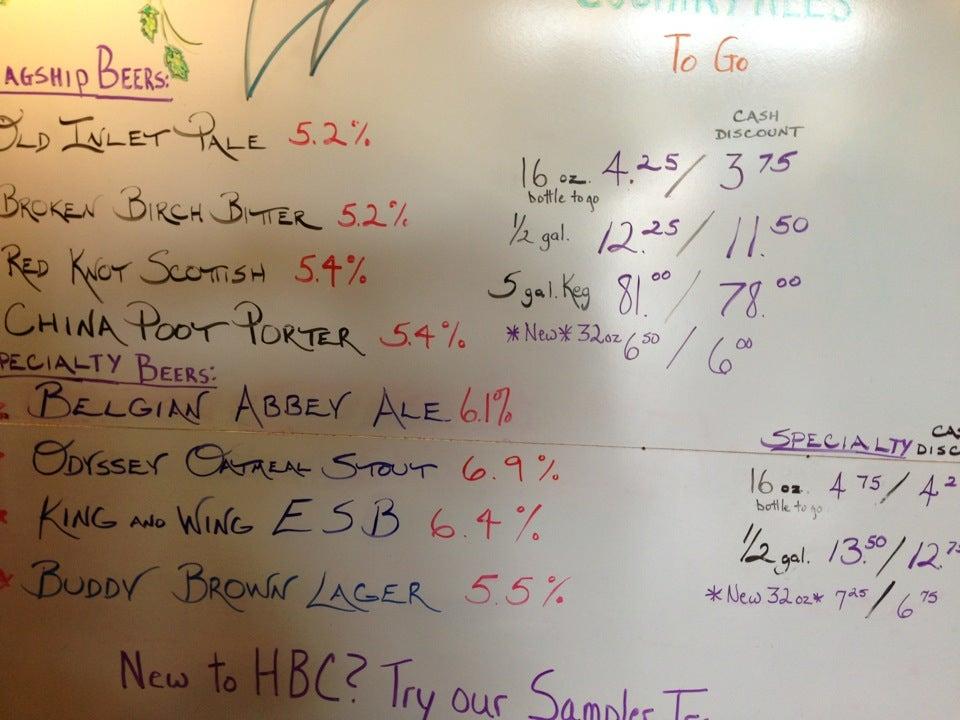 To Go
AGSHIP BEERS:
OLD INLET PALE 5.2%
BROKEN BIRCH BITTER 5.2%
RED KNOT SCOTTISH 5.4%
CHINA POOT PORTER 5.4%
CASH DISCOUNT
16 oz. bottle to go 4.25 / 3 75
1/2 gal. 12.25 / 11.50
5 gal. Keg 81.00 / 78.00
*New* 32oz 6 50 / 6 00
PECIALTY BEERS:
BELGIAN ABBEY ALE 6.1%
ODYSSEY OATMEAL STOUT 6.9%
KING AND WING ESB 6.4%
BUDDY BROWN LAGER 5.5%
SPECIALTY CA
DISC
16 oz. bottle to go 4 75 / 4 2
1/2 gal. 13.50 / 12.75
*New 32oz* 7 25 / 6 75
New to HBC? Try our Sampler